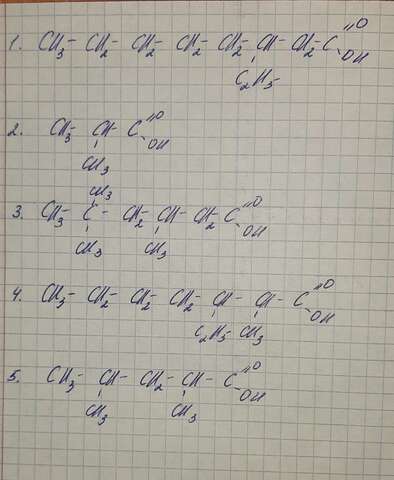 1. CH3 - CH2 - CH2 - CH2 - CH2 - CH - CH2 - C =O
- OH
C2H5 -
2. CH3 - CH - C =O
- OH
CH3
CH3
3. CH3 - C - CH2 - CH - CH2 - C =O
- OH
CH3 CH3
4. CH3 - CH2 - CH2 - CH2 - CH - CH - C =O
- OH
C2H5 - CH3
5. CH3 - CH - CH2 - CH - C =O
- OH
CH3 CH3